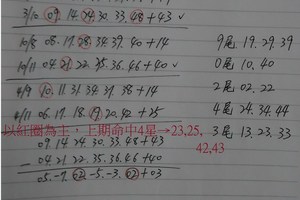 3/10 09 14 24 30. 33. 48 + 43 ✓
10/8 08. 17. 28 34. 39. 40 + 14
9尾 19. 29. 39
10/11 04 21 22. 35. 36. 46 + 40 ✓
0尾 10. 40
4/9 10. 11. 31 34. 37. 38 + 14
2尾 02. 22
4/11 06. 17. 18. 19 20. 42 + 25
4尾 24. 34. 44
以紅圈為主，上期命中4星→23,25,
42,43
3尾 13. 23. 33
09. 14 24. 30. 33. 48 + 43
- 04. 21 22. 35. 36. 46 + 40
05. -7. 02 -5. -3. 02 + 03